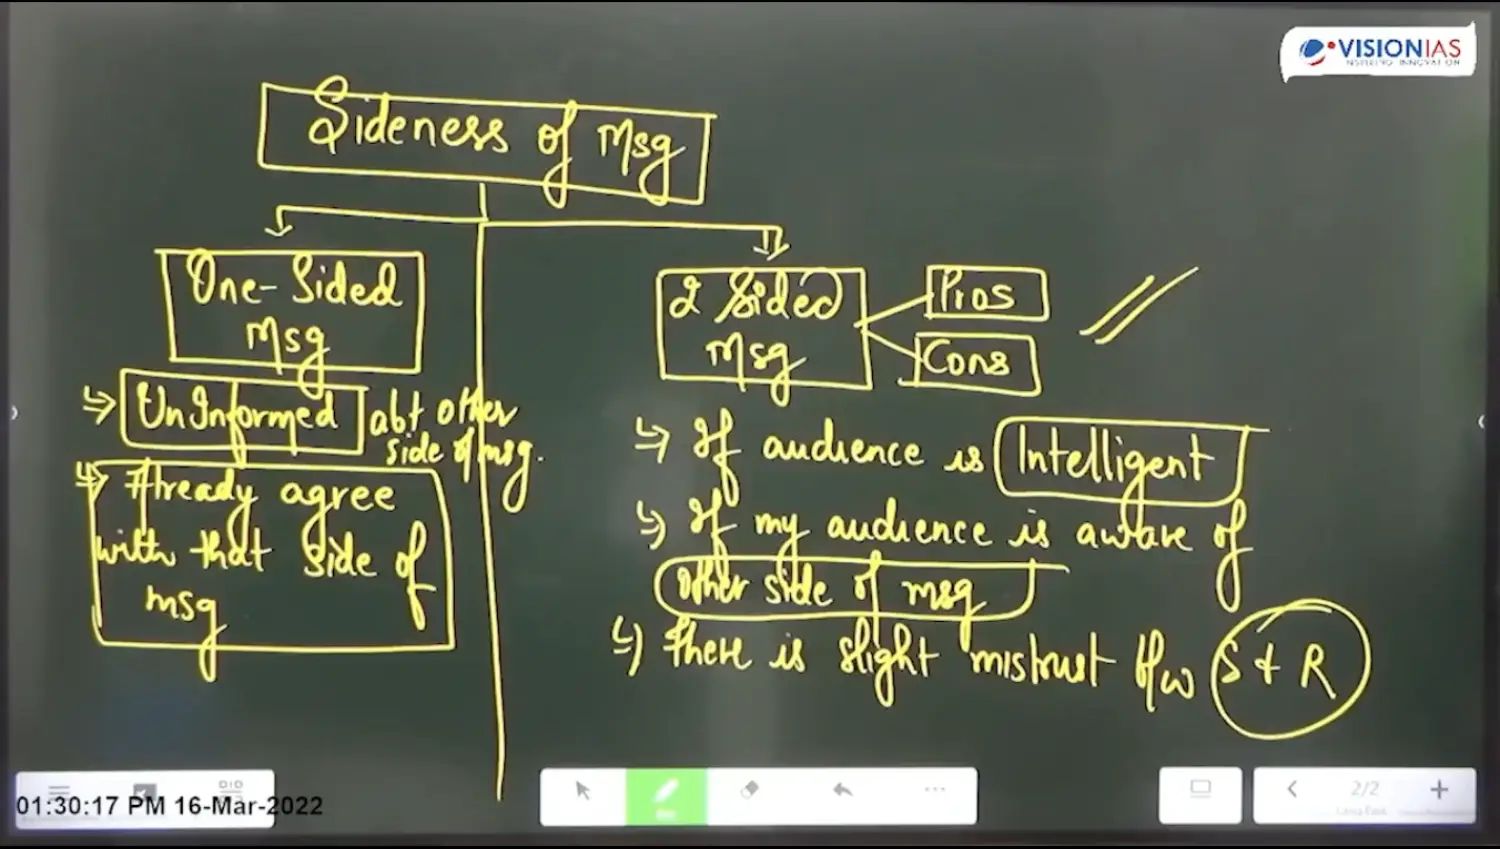 VISIONIAS
INSPIRING INNOVATION
Sideness of Msg
One-Sided
Msg
UnInformed abt other
side of msg.
Already agree
with that side of
msg
2 Sided
Msg
Pros
Cons
If audience is Intelligent
If my audience is aware of
other side of msg
There is slight mistrust b/w S & R
01:30:17 PM 16-Mar-2022
2/2